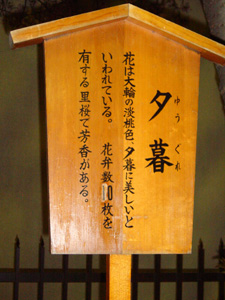 夕暮
ゆうぐれ
花は大輪の淡桃色、夕暮に美しいと
いわれている。 花弁数10枚を
有する里桜で芳香がある。